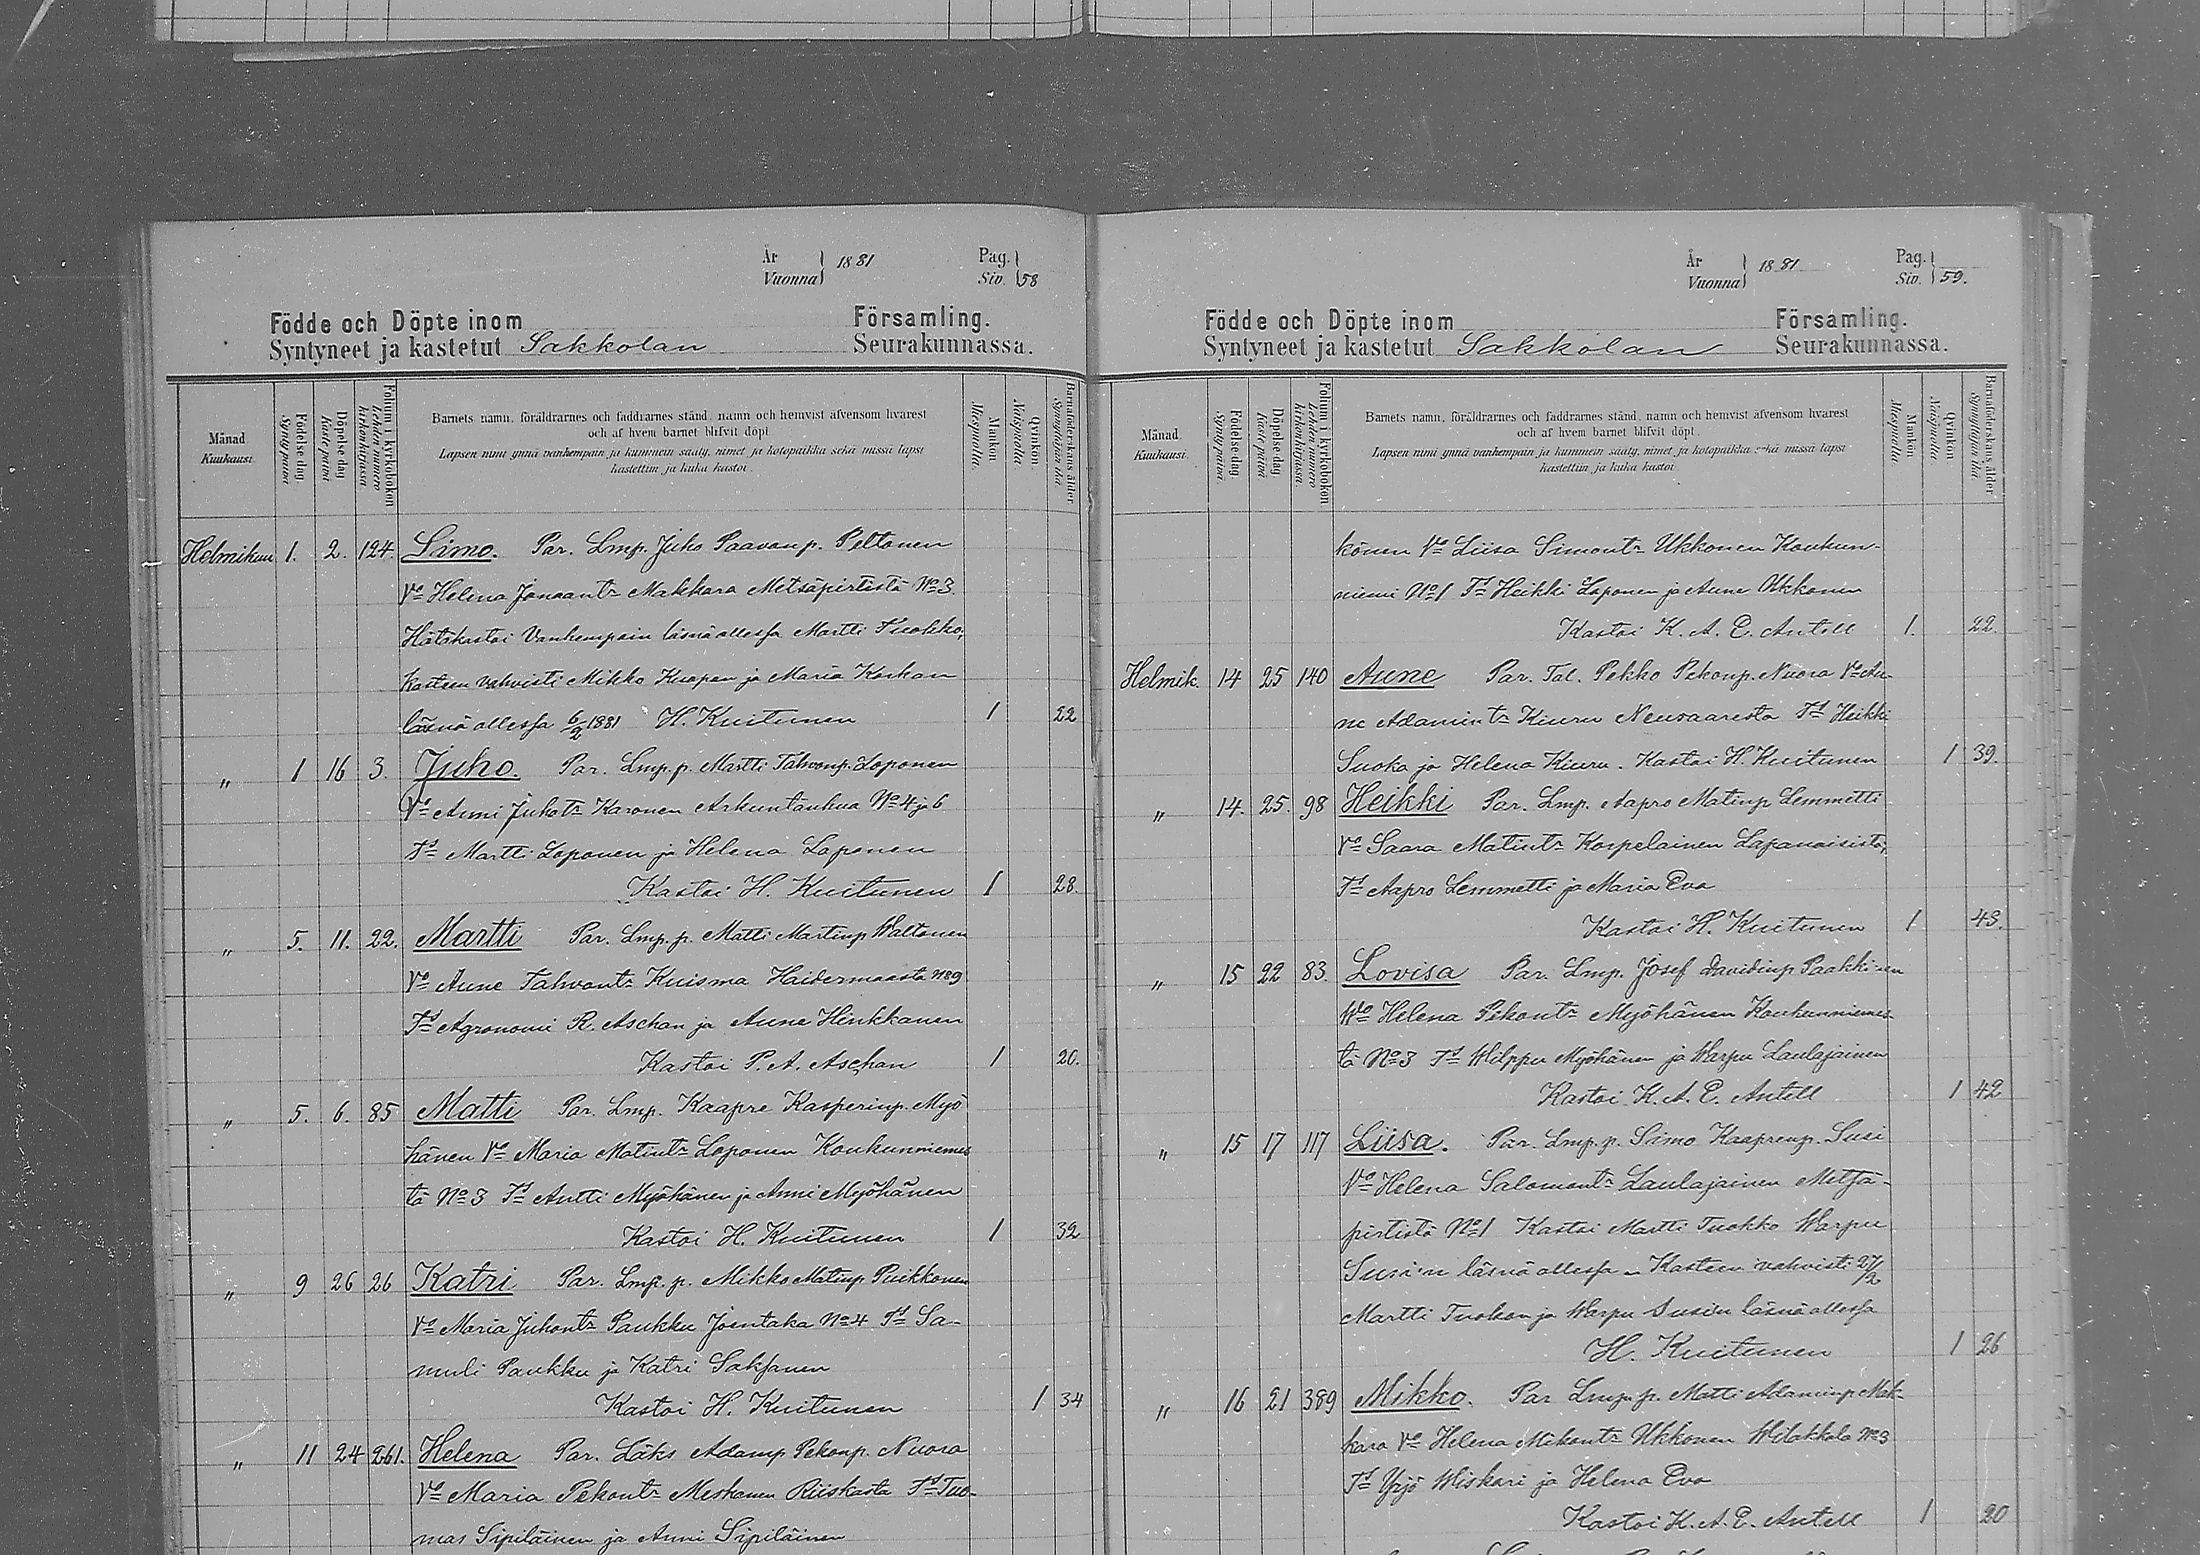 År
Vuonna } 1881
Pag.
Siv. } 58
Födde och Döpte inom Församling.
Syntyneet ja kastetut Sakkolan Seurakunnassa.
Månad
Kuukausi.
Födelsedag.
Syntypäivä
Döpelsedag
Kastepäivä
Folium i kyrkoboken
Lehden numero kirkonkirjassa
Barnets namn, föräldrarnes och faddrarnes stånd, namn och hemvist äfvensom hvarest
och af hvem barnet blifvit döpt.
Lapsen nimi ynnä vanhempain ja kummein sääty, nimet ja kotopaikka sekä missä lapsi
kastettiin ja kuka kastoi.
Mankön
Miespuolta.
Qvinkön
Naispuolta
Barnaföderskans ålder
Synnyttäjän ikä
Helmikuu 1. 2. 124. Simo. Par. Lmp. Juho Paavonp. Peltonen
Vo Helena Joonaantr Makkara Metsäpirtistä No 3.
Hätäkastoi Vanhempain läsnä ollessa Martti Tuokko,
Kasteen vahvisti Mikko Kuapen ja Maria Koskan
läsnä ollessa 6/2 1881 H. Kuitunen 1 22
" 1 16 3. Juho. Par. Lmp. p. Martti Tahvonp. Loponen
Vo Anni Juhotr Karonen Arkuntanhua No 4 ja 6
Td Martti Loponen ja Helena Loponen
Kastoi H. Kuitunen 1 28.
" 5. 11. 22. Martti Par. Lmp. p. Matti Martinp Waltonen
Vo Aune Tahvontr Kuisma Haidermaasta No 9
Td Agronomi R. Aschan ja Aune Hinkkanen
Kastoi P. A. Aschan 1 20.
" 5. 6. 85 Matti Par. Lmp. Kaapre Kasperinp. Myö
hänen Vo Maria Matintr Loponen Koukunniemes
tä No 3 Td Antti Myöhänen ja Anni Myöhänen
Kastoi H. Kuitunen 1 32
" 9 26 26 Katri Par. Lmp. p. Mikko Matinp Puikkonen
Vo Maria Juhontr Paukku Joentaka No 4 Td Sa-
muli Paukku ja Katri Saksanen
Kastoi H. Kuitunen 1 34
" 11 24 261. Helena Par. Läks Adamp Pekonp. Nuora
Vo Maria Pekontr Meskanen Riiskasta Td Tuo-
mas Sipiläinen ja Anni Sipiläinen
År
Vuonna } 1881
Pag.
Siv. } 59.
Födde och Döpte inom Församling.
Syntyneet ja kastetut Sakkolan Seurakunnassa.
Månad
Kuukausi.
Födelsedag.
Syntypäivä
Döpelsedag.
Kastepäivä
Folium i kyrkoboken
Lehden numero kirkonkirjassa
Barnets namn, föräldrarnes och faddrarnes stånd, namn och hemvist äfvensom hvarest
och af hvem barnet blifvit döpt.
Lapsen nimi ynnä vanhempain ja kummein sääty, nimet ja kotopaikka sekä missä lapsi
kastettiin ja kuka kastoi
Mankön
Miespuolta.
Qvinkön
Naispuolta
Barnaföderskans ålder
Synnyttäjän ikä
könen Vo Liisa Simontr Ukkonen Koukun-
niemi No 1 Td Heikki Loponen ja Aune Ukkonen
Kastoi K. A. E. Antell 1. 22.
Helmik. 14 25 140 Aune Par. Tal. Pekko Pekonp. Nuora Vo Au-
ne Adamintr Kiuru Neusaaresta Td Heikki
Suoka ja Helena Kiuru. Kastoi H. Kuitunen 1 39.
" 14. 25. 98 Heikki Par. Lmp. Aapro Matinp Lemmetti
Vo Saara Matintr Korpelainen Lapanaisista,
Td Aapro Lemmetti ja Maria Eva
Kastoi H. Kuitunen 1 43.
" 15 22 83. Lovisa Par. Lmp. Josef Davidinp Paakkinen
Wo Helena Pekontr Myöhänen Koukunniemes
tä No 3 Td Wilppu Myöhänen ja Warpu Laulajainen
Kastoi K. A. E. Antell 1 42
" 15 17 117 Liisa. Par. Lmp. p. Simo Kaaprenp. Susi
Vo Helena Salomontr Laulajainen Metsä-
pirtistä No 1 Kastoi Martti Tuokko Warpu
Susi:n läsnä ollessa Kasteen vahvisti 27/2
Martti Tuokon ja Warpu Susin läsnä ollessa
H. Kuitunen 1 26
" 16 21 389 Mikko. Par Lmp. p. Matti Adaminp Mak-
kara Vo Helena Mikontr Ukkonen Wilakkala No 3
Td Yrjö Wiskari ja Helena Eva
Kastoi K. A. E. Antell 1 20